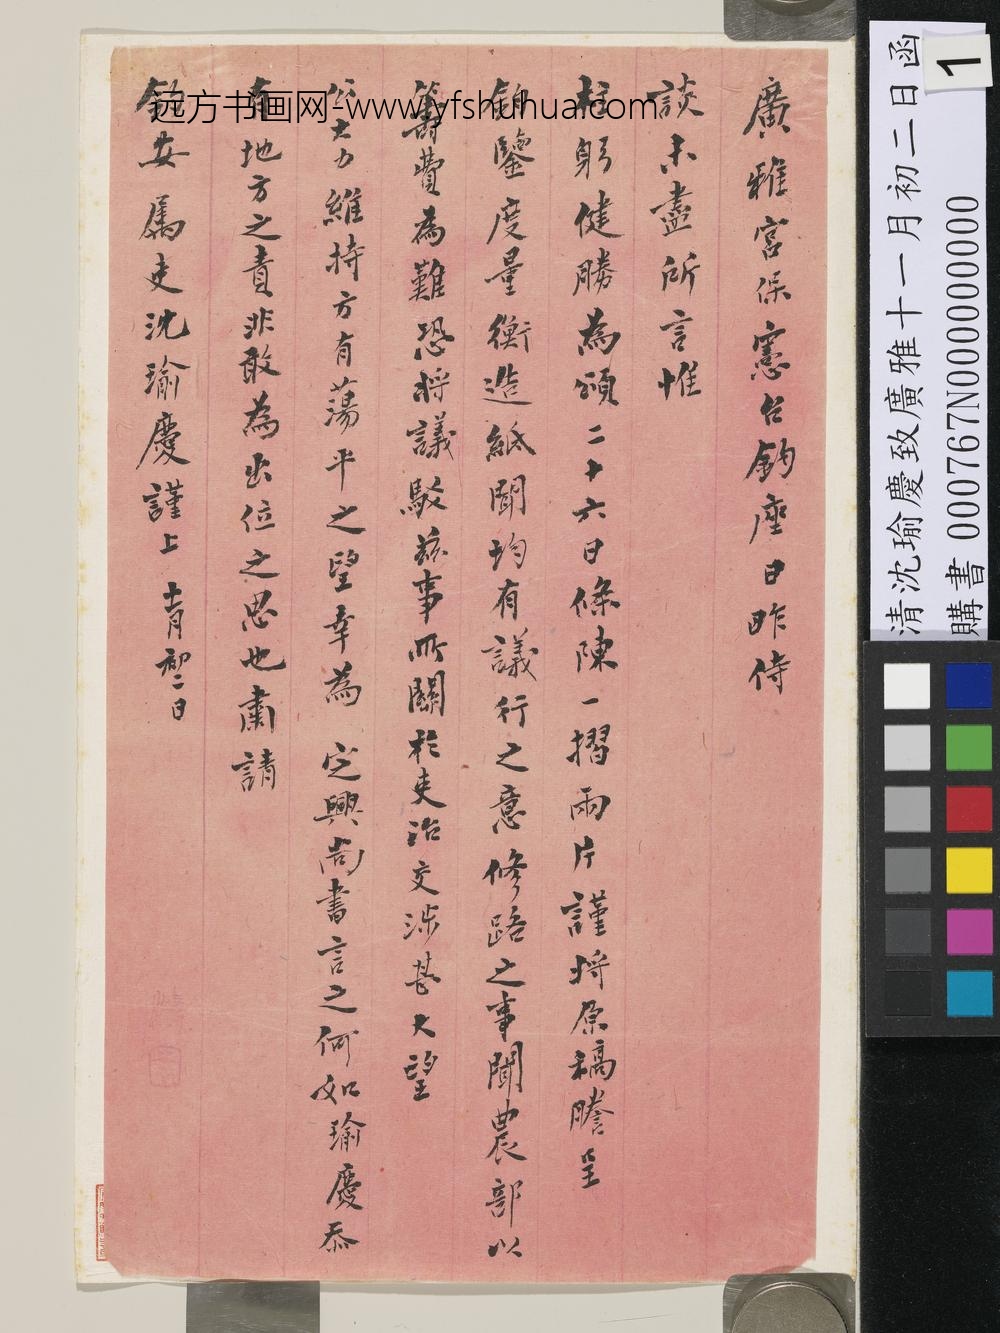 廣雅宮保憲台鈞座日昨侍
談未盡所言惟
起躬健勝為頌二十六日條陳一摺兩片謹將原稿謄呈
鈞鑒度量衡造紙聞均有議行之意修路之事聞農部以
籌費為難恐將議駁茲事所關於吏治交涉甚大望
公大力維持方有蕩平之望幸為 定興尚書言之何如瑜慶忝
有地方之責非敢為出位之思也肅請
鈞安屬吏沈瑜慶謹上 十一月初二日
远方书画网-www.yfshuhua.com
1
清沈瑜慶致廣雅十一月初二日函
購書 000767N000000000